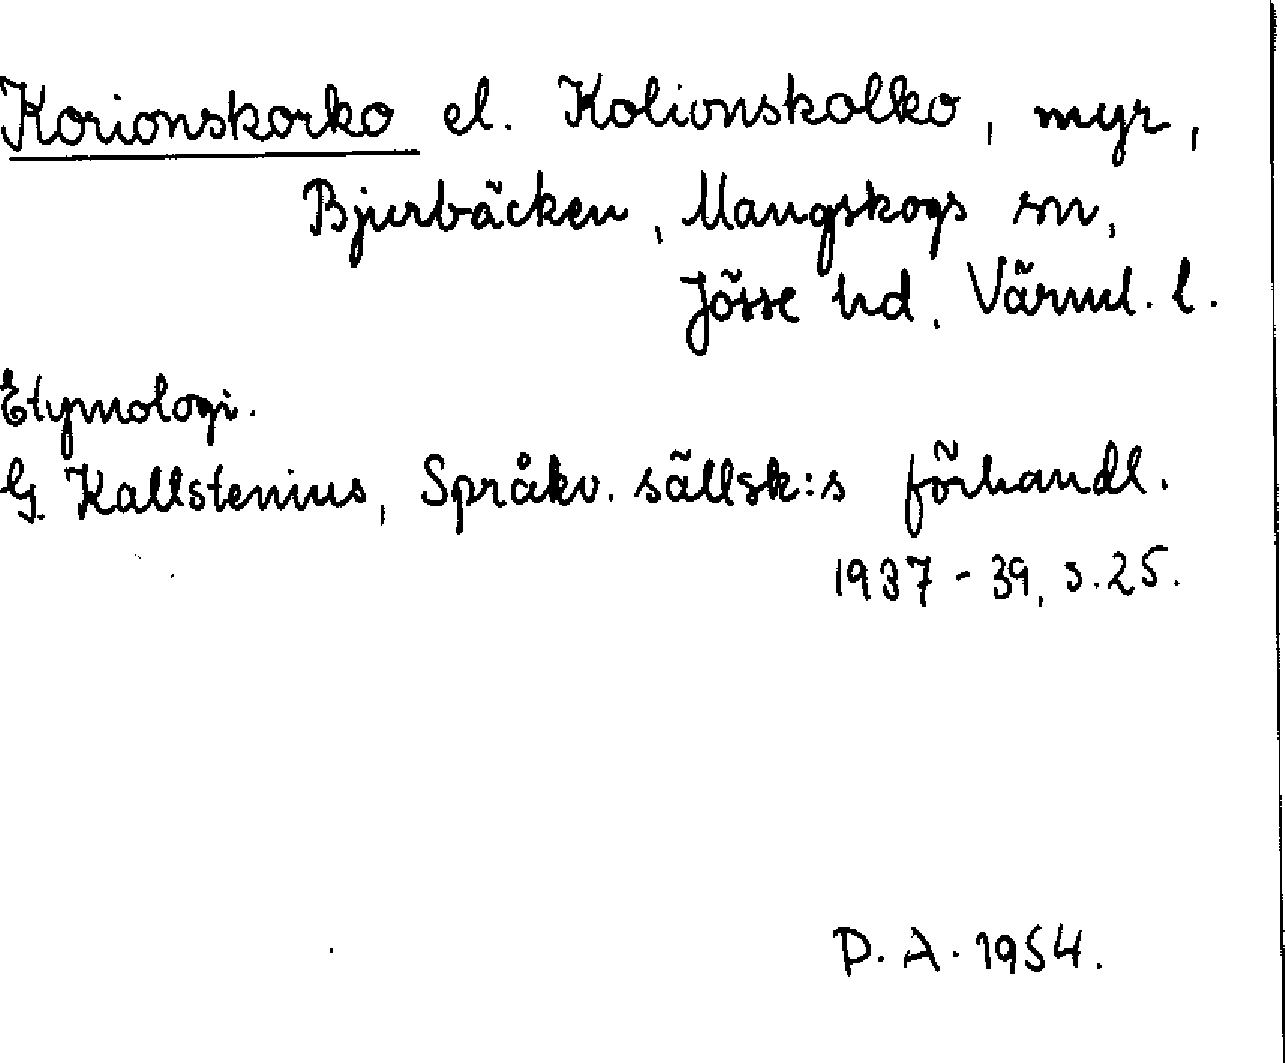 Korionskorko el. Kolionskolko, myr,
Bjurbäcken, Mangskogs sn,
Jösse hd, Värml. l.
Etymologi.
G. Kallstenius, Språkv. sällsk:s förhandl.
1937-39, s. 25.
D. A. 1954.